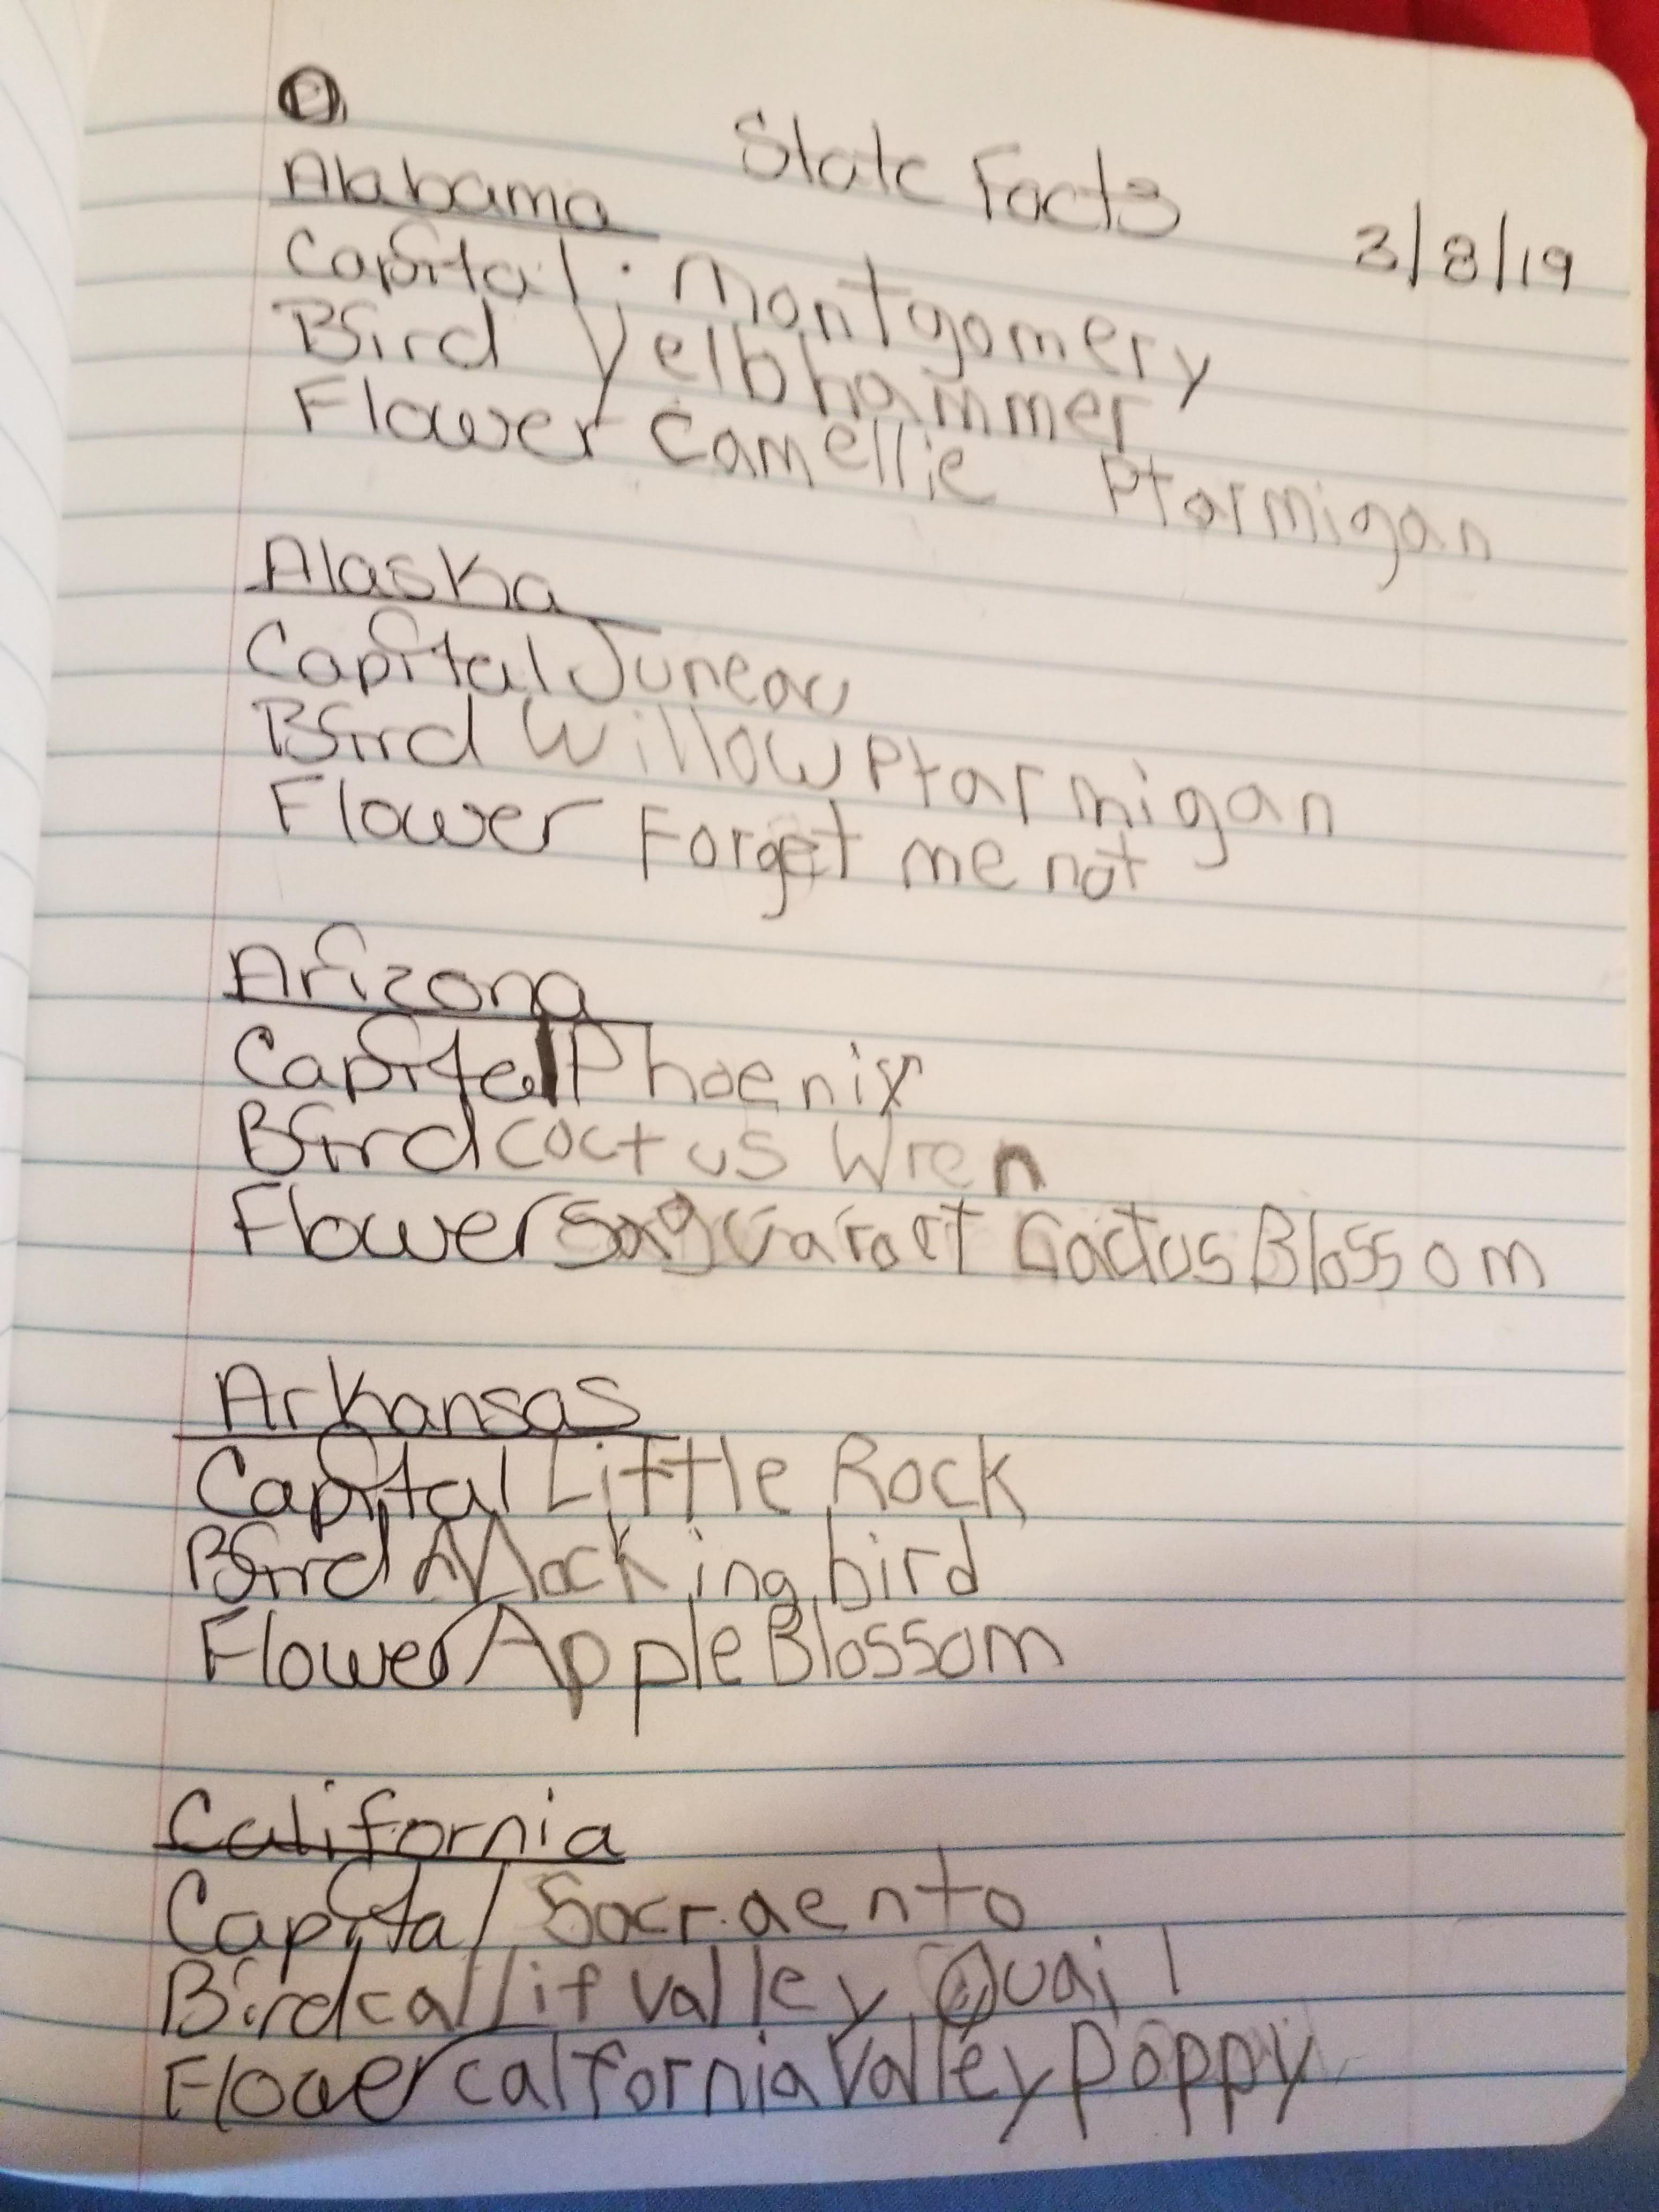 State Facts
Alabama
3/8/19
Capital: Montgomery
Bird Yelbhammer
Flower Camellie Ptarmigan
Alaska
Capital Juneau
Bird Willow Ptarmigan
Flower Forget me not
Arizona
Capital Phoenix
Bird Coctus Wren
Flower Cactus Blossom
Arkansas
Capital Little Rock
Bird Mocking bird
Flower Apple Blossom
California
Capital Sacraento
Bird callif valley Quail
Flower calfornia Valley poppy